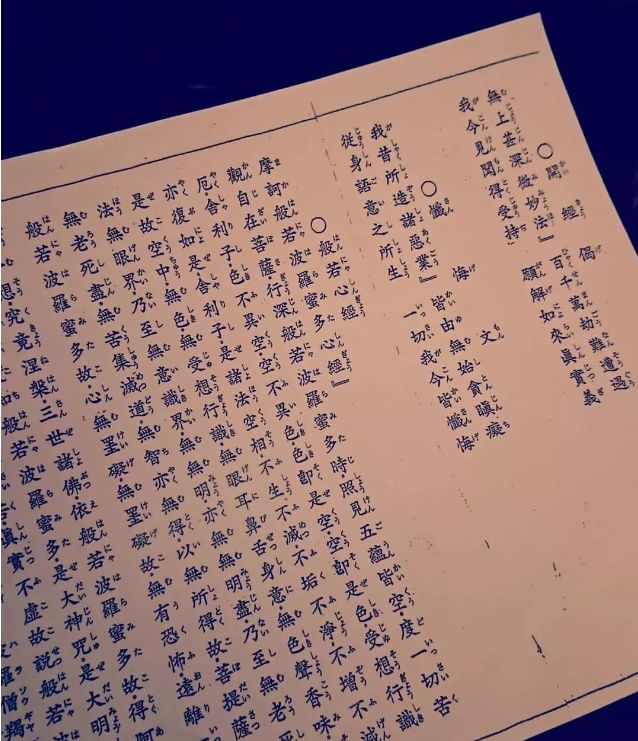 ○開經偈
無上甚深微妙法』 百千萬劫難遭遇
我今見聞得受持 願解如來眞實義
○懺悔文
我昔所造諸惡業』 皆由無始貪瞋癡
從身語意之所生 一切我今皆懺悔
○般若心經
摩訶般若波羅蜜多心經』
觀自在菩薩・行深般若波羅蜜多時・照見五蘊皆空・度一切苦
厄・舍利子・色不異空・空不異色・色卽是空・空卽是色・受想行識
亦復如是・舍利子・是諸法空相・不生不滅・不垢不淨・不增不減
是故空中・無色・無受想行識・無眼耳鼻舌身意・無色聲香味
法・無眼界・乃至無意識界・無無明・亦無無明盡・乃至無老死
無老死盡・無苦集滅道・無智亦無得・以無所得故・菩提薩
般若波羅蜜多故・心無罣礙・無罣礙故・無有恐怖・遠離
想究竟涅槃・三世諸佛・依般若波羅蜜多故・得阿
知般若波羅蜜多・是大神咒・是大明
苦・眞實不虛・故說般若波
羅僧羯